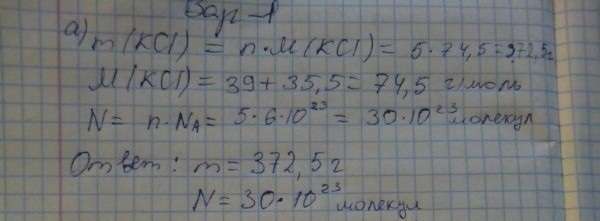 Вар-1
а) m(KCl) = n·M(KCl) = 5·74,5=372,5г
M(KCl) = 39+35,5= 74,5 г/моль
N= n·Nᴀ= 5·6·10²³ = 30·10²³ молекул
Ответ: m = 372,5 г
N = 30·10²³ молекул